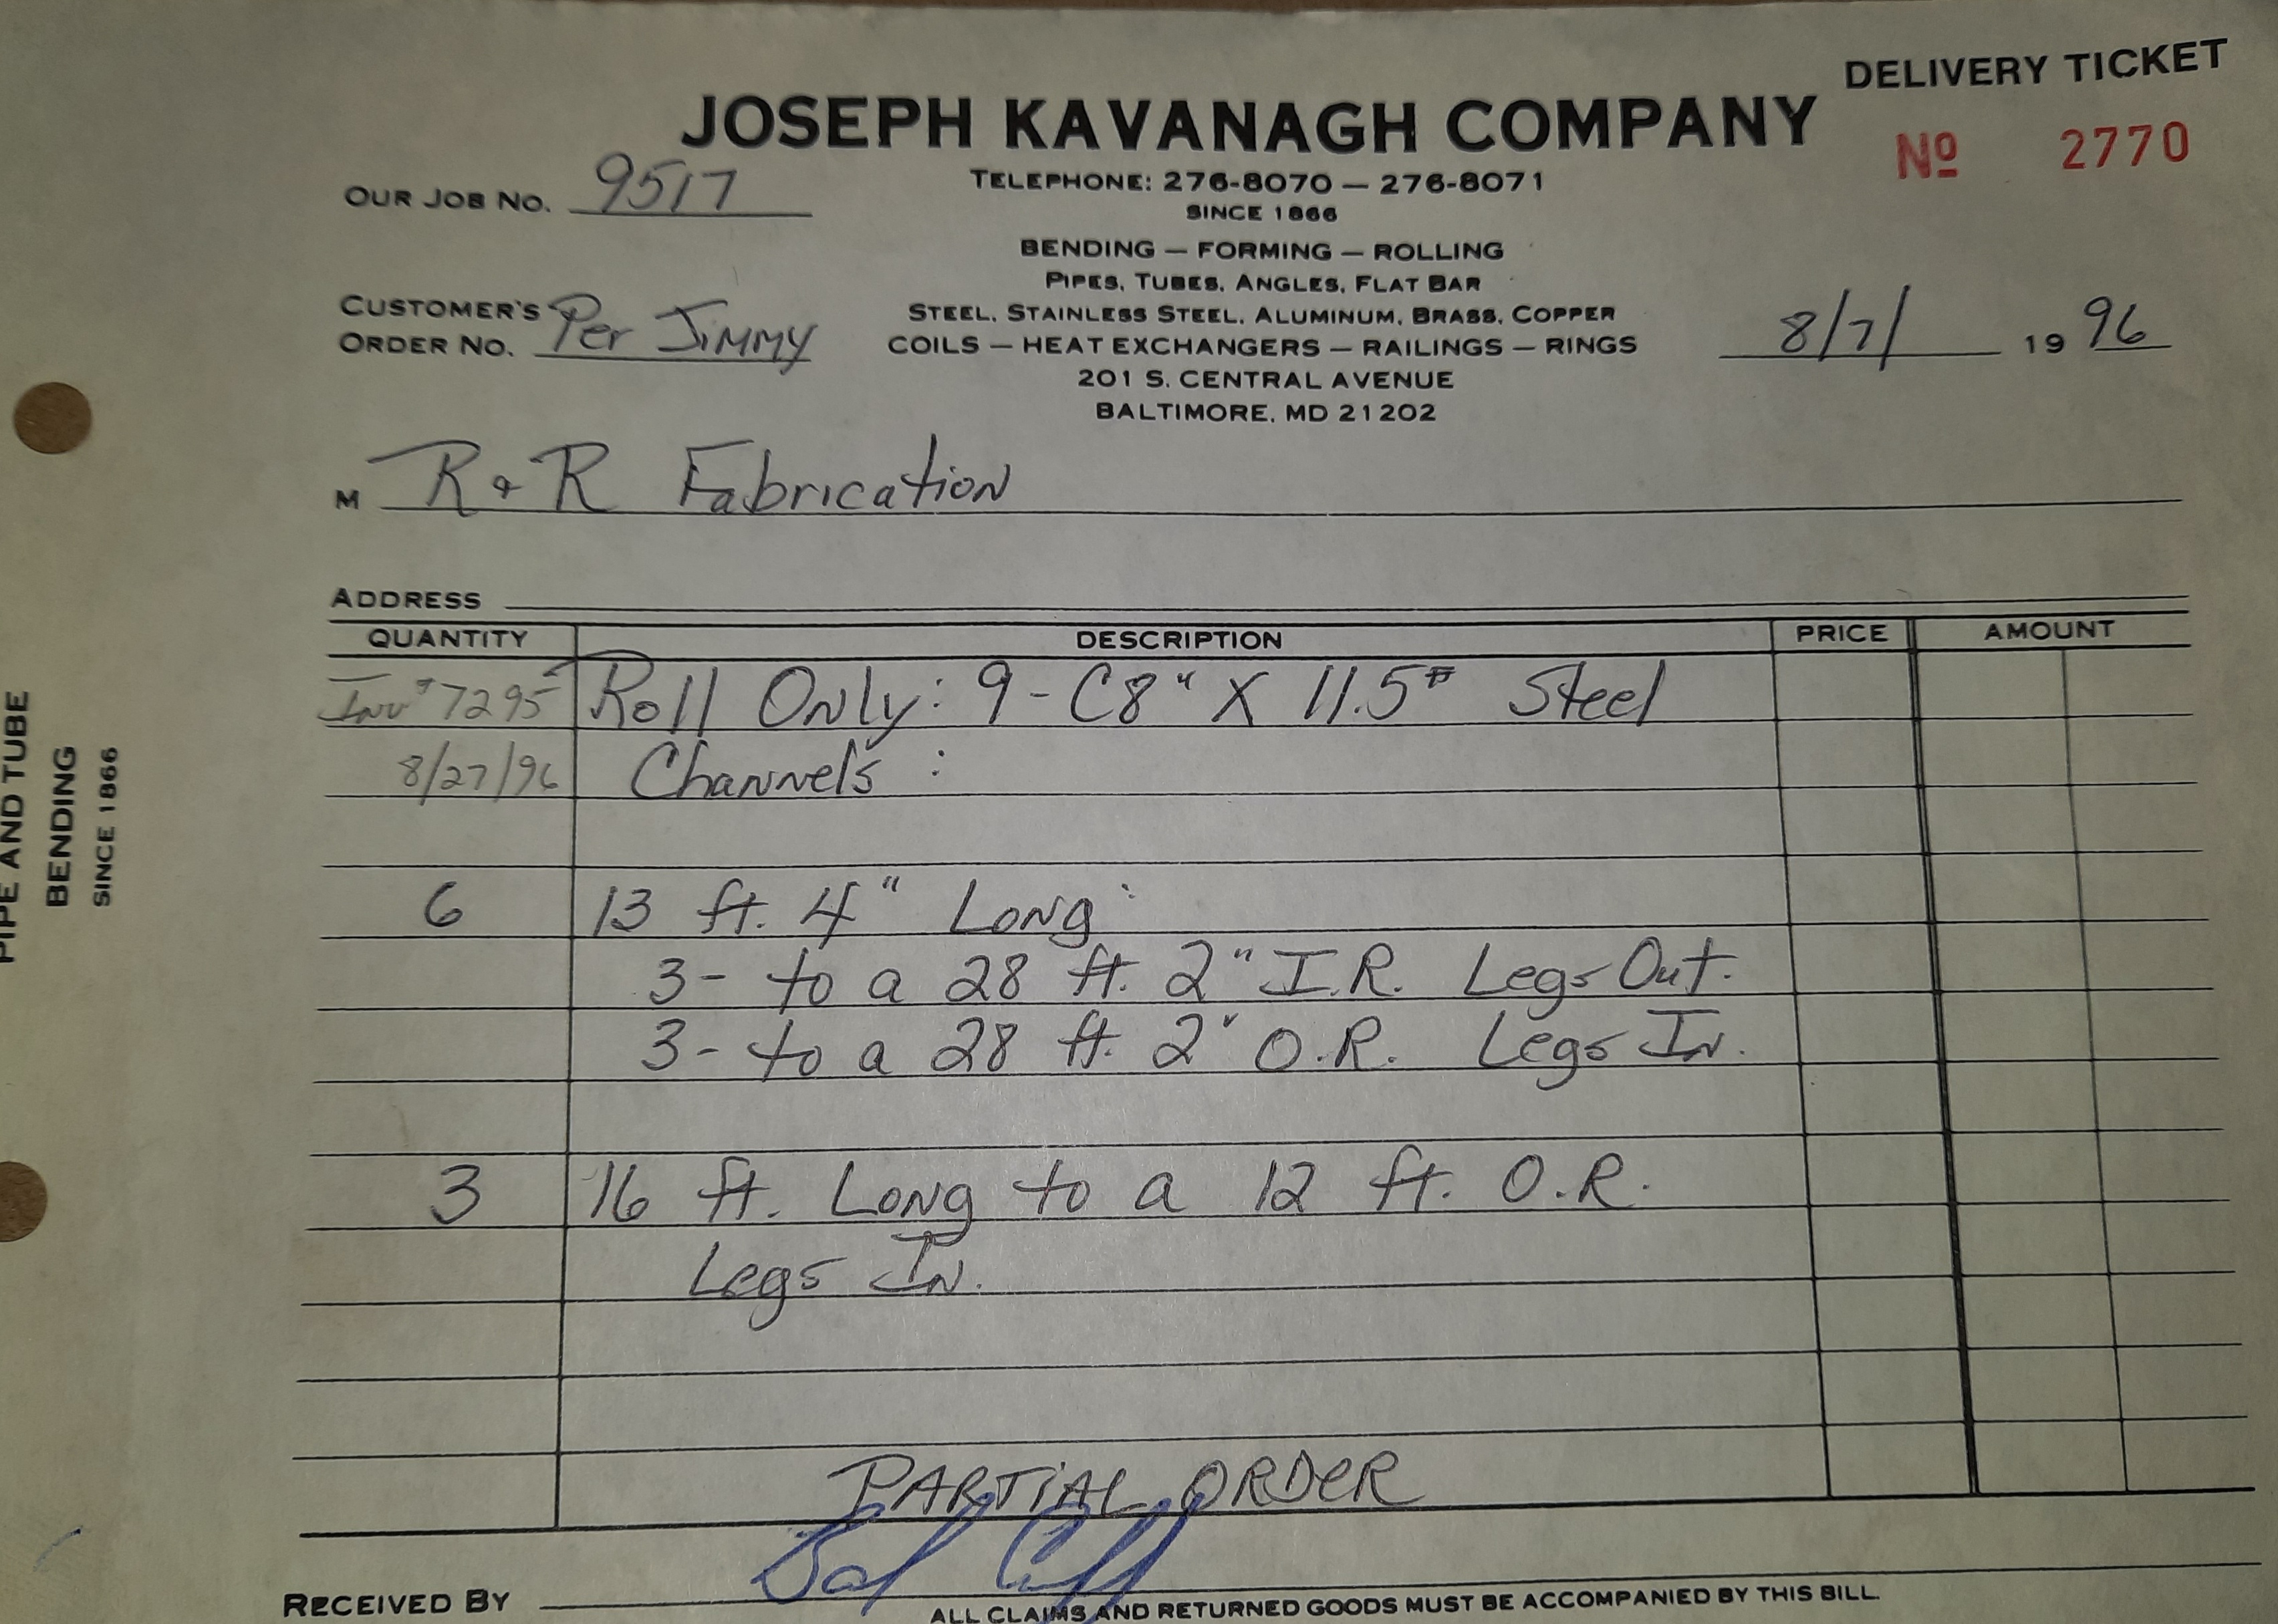 DELIVERY TICKET
JOSEPH KAVANAGH COMPANY
Nº 2770
OUR JOB NO. 9517
TELEPHONE: 276-8070 — 276-8071
SINCE 1866
BENDING — FORMING — ROLLING
PIPES, TUBES, ANGLES, FLAT BAR
CUSTOMER'S
ORDER NO. Per Jimmy
STEEL, STAINLESS STEEL, ALUMINUM, BRASS, COPPER
COILS — HEAT EXCHANGERS — RAILINGS — RINGS
8/7/ 19 96
201 S. CENTRAL AVENUE
BALTIMORE, MD 21202
M R & R Fabrication
ADDRESS
QUANTITY DESCRIPTION PRICE AMOUNT
Inv # 7295 Roll Only: 9 - C8" X 11.5# Steel
8/27/96 Channels :
6 13 ft. 4" Long:
3- to a 28 ft. 2" I.R. Legs Out.
3- to a 28 ft. 2" O.R. Legs In.
3 16 ft. Long to a 12 ft. O.R.
Legs In.
PARTIAL ORDER
RECEIVED BY
ALL CLAIMS AND RETURNED GOODS MUST BE ACCOMPANIED BY THIS BILL.
PIPE AND TUBE
BENDING
SINCE 1866